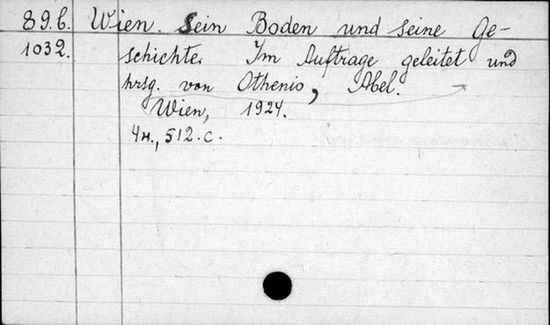 89.b. Wien. Sein Boden und seine Ge-
1032. schichte. Im Auftrage geleitet und
hrsg. von Othenio, Abel.
Wien, 1924.
4н., 512.с.